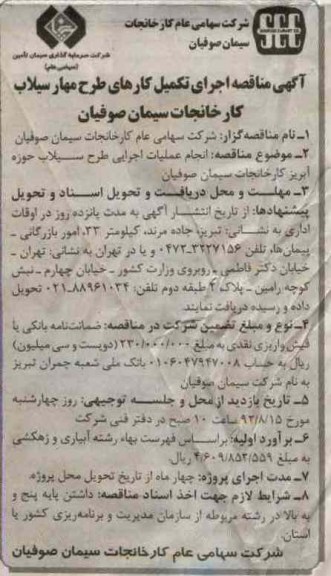 شرکت سهامی عام کارخانجات
سیمان صوفیان
SCC
شرکت سرمایه گذاری سیمان تأمین
(سهامی عام)
آگهی مناقصه اجرای تکمیل کارهای طرح مهار سیلاب
کارخانجات سیمان صوفیان
۱ـ نام مناقصه گزار: شرکت سهامی عام کارخانجات سیمان صوفیان
۲ـ موضوع مناقصه: انجام عملیات اجرایی طرح سیلاب حوزه
آبریز کارخانجات سیمان صوفیان
۳ـ مهلت و محل دریافت و تحویل اسناد و تحویل
پیشنهادها: از تاریخ انتشار آگهی به مدت پانزده روز در اوقات
اداری به نشانی: تبریز، جاده مرند، کیلومتر ۳۳، امور بازرگانی ـ
پیمان‌ها، تلفن ۳۲۲۷۱۵۶-۰۴۷۲ و یا در تهران به نشانی: تهران ـ
خیابان دکتر فاطمی ـ روبروی وزارت کشور ـ خیابان چهارم ـ نبش
کوچه رامین ـ پلاک ۲ طبقه دوم تلفن: ۸۸۹۶۱۰۳۴-۰۲۱ تحویل
داده و رسیده دریافت نمایند.
۴ـ نوع و مبلغ تضمین شرکت در مناقصه: ضمانت‌نامه بانکی یا
فیش واریزی نقدی به مبلغ ۲۳۰/۰۰۰/۰۰۰ (دویست و سی میلیون)
ریال به حساب ۰۱۰۶۰۴۷۹۴۷۰۰۸ بانک ملی شعبه چمران تبریز
به نام شرکت سیمان صوفیان
۵ـ تاریخ بازدید از محل و جلسه توجیهی: روز چهارشنبه
مورخ ۹۲/۸/۱۵ ساعت ۱۰ صبح در دفتر فنی شرکت
۶ـ برآورد اولیه: براساس فهرست بهاء رشته آبیاری و زهکشی
به مبلغ ۴/۶۰۹/۸۵۲/۵۵۹ ریال.
۷ـ مدت اجرای پروژه: چهار ماه از تاریخ تحویل محل پروژه.
۸ـ شرایط لازم جهت اخذ اسناد مناقصه: داشتن پایه پنج و
به بالا در رشته مربوطه از سازمان مدیریت و برنامه‌ریزی کشور یا
استان.
شرکت سهامی عام کارخانجات سیمان صوفیان